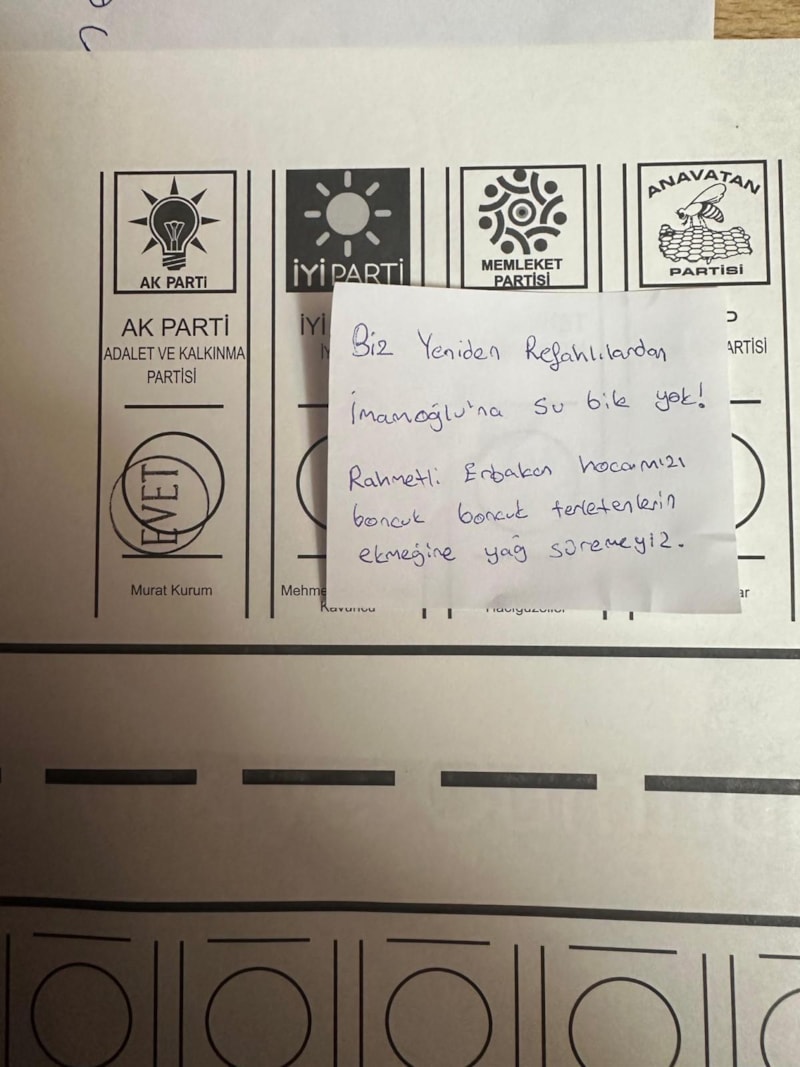 AK PARTİ
İYİ PARTİ
MEMLEKET
PARTİSİ
ANAVATAN
PARTİSİ
AK PARTİ
ADALET VE KALKINMA
PARTİSİ
EVET
Murat Kurum
İYİ
ARTİSİ
Biz Yeniden Refahlılardan
İmamoğlu'na su bile yok!
Rahmetli Erbakan hocamızı
boncuk boncuk terletenlerin
ekmeğine yağ süremeyiz.
Mehme
Kavuncu
Hacıgüzeller
ar